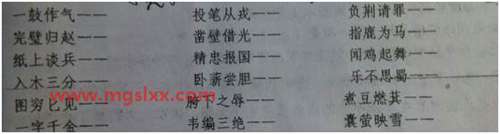 一鼓作气—— 投笔从戎—— 负荆请罪——
完璧归赵—— 凿壁借光—— 指鹿为马——
纸上谈兵—— 精忠报国—— 闻鸡起舞——
入木三分—— 卧薪尝胆—— 乐不思蜀——
www.mgslxx.com
图穷匕见—— 胯下之辱—— 煮豆燃萁——
一字千金—— 韦编三绝—— 囊萤映雪——